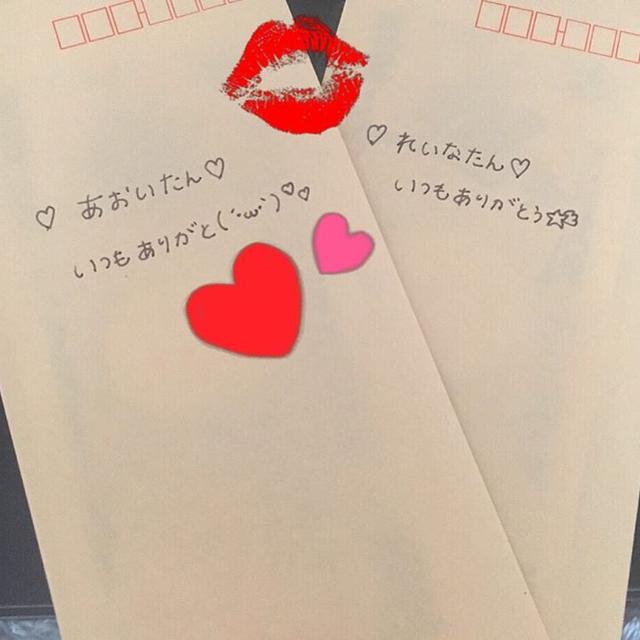 ♡ あおいたん♡
いつもありがと(´･ω･`)♡♡
♡ れいなたん♡
いつもありがとう☆彡